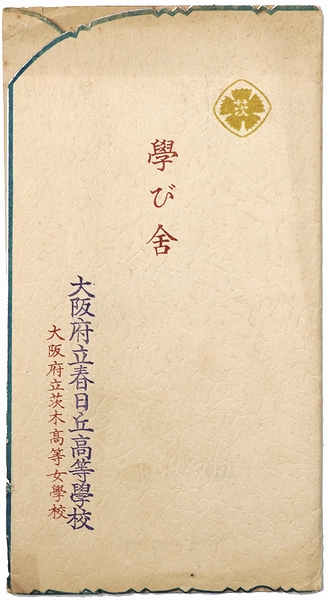 茨
學び舎
大阪府立春日丘高等學校
大阪府立茨木高等女學校